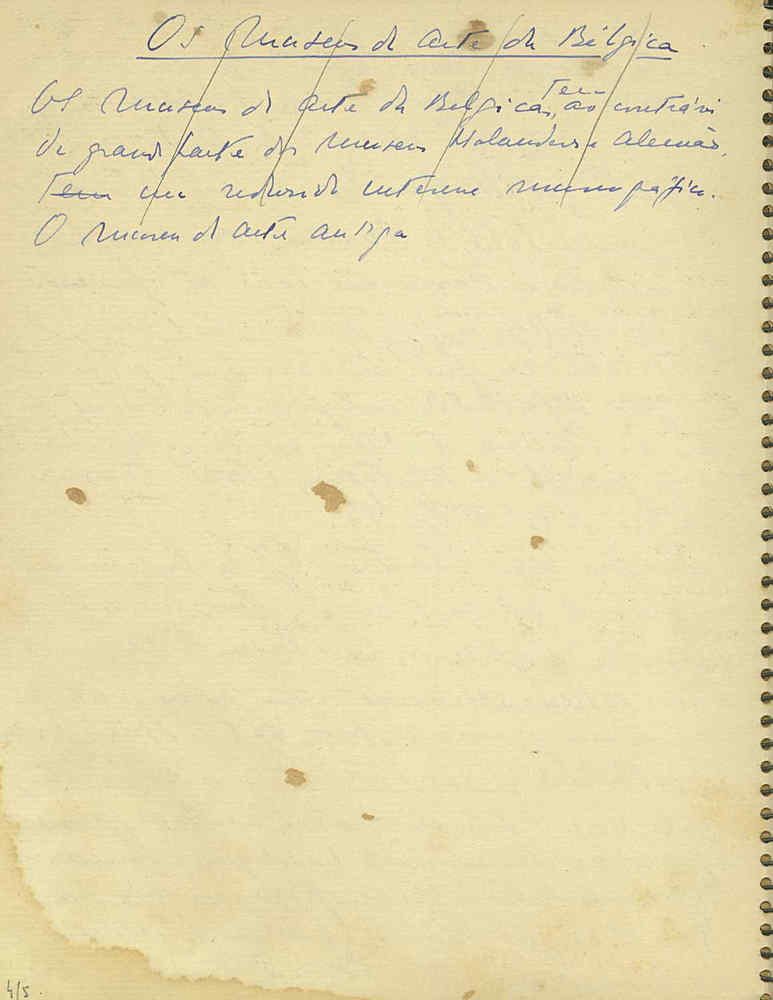 Os Museus de Arte da Bélgica
Os Museus de Arte da Belgica, tem
ao contrário
da grande parte dos Museus Holandeses e Alemães,
tem um reduzido interesse museográfico.
O Museu de Arte antiga
4/5.